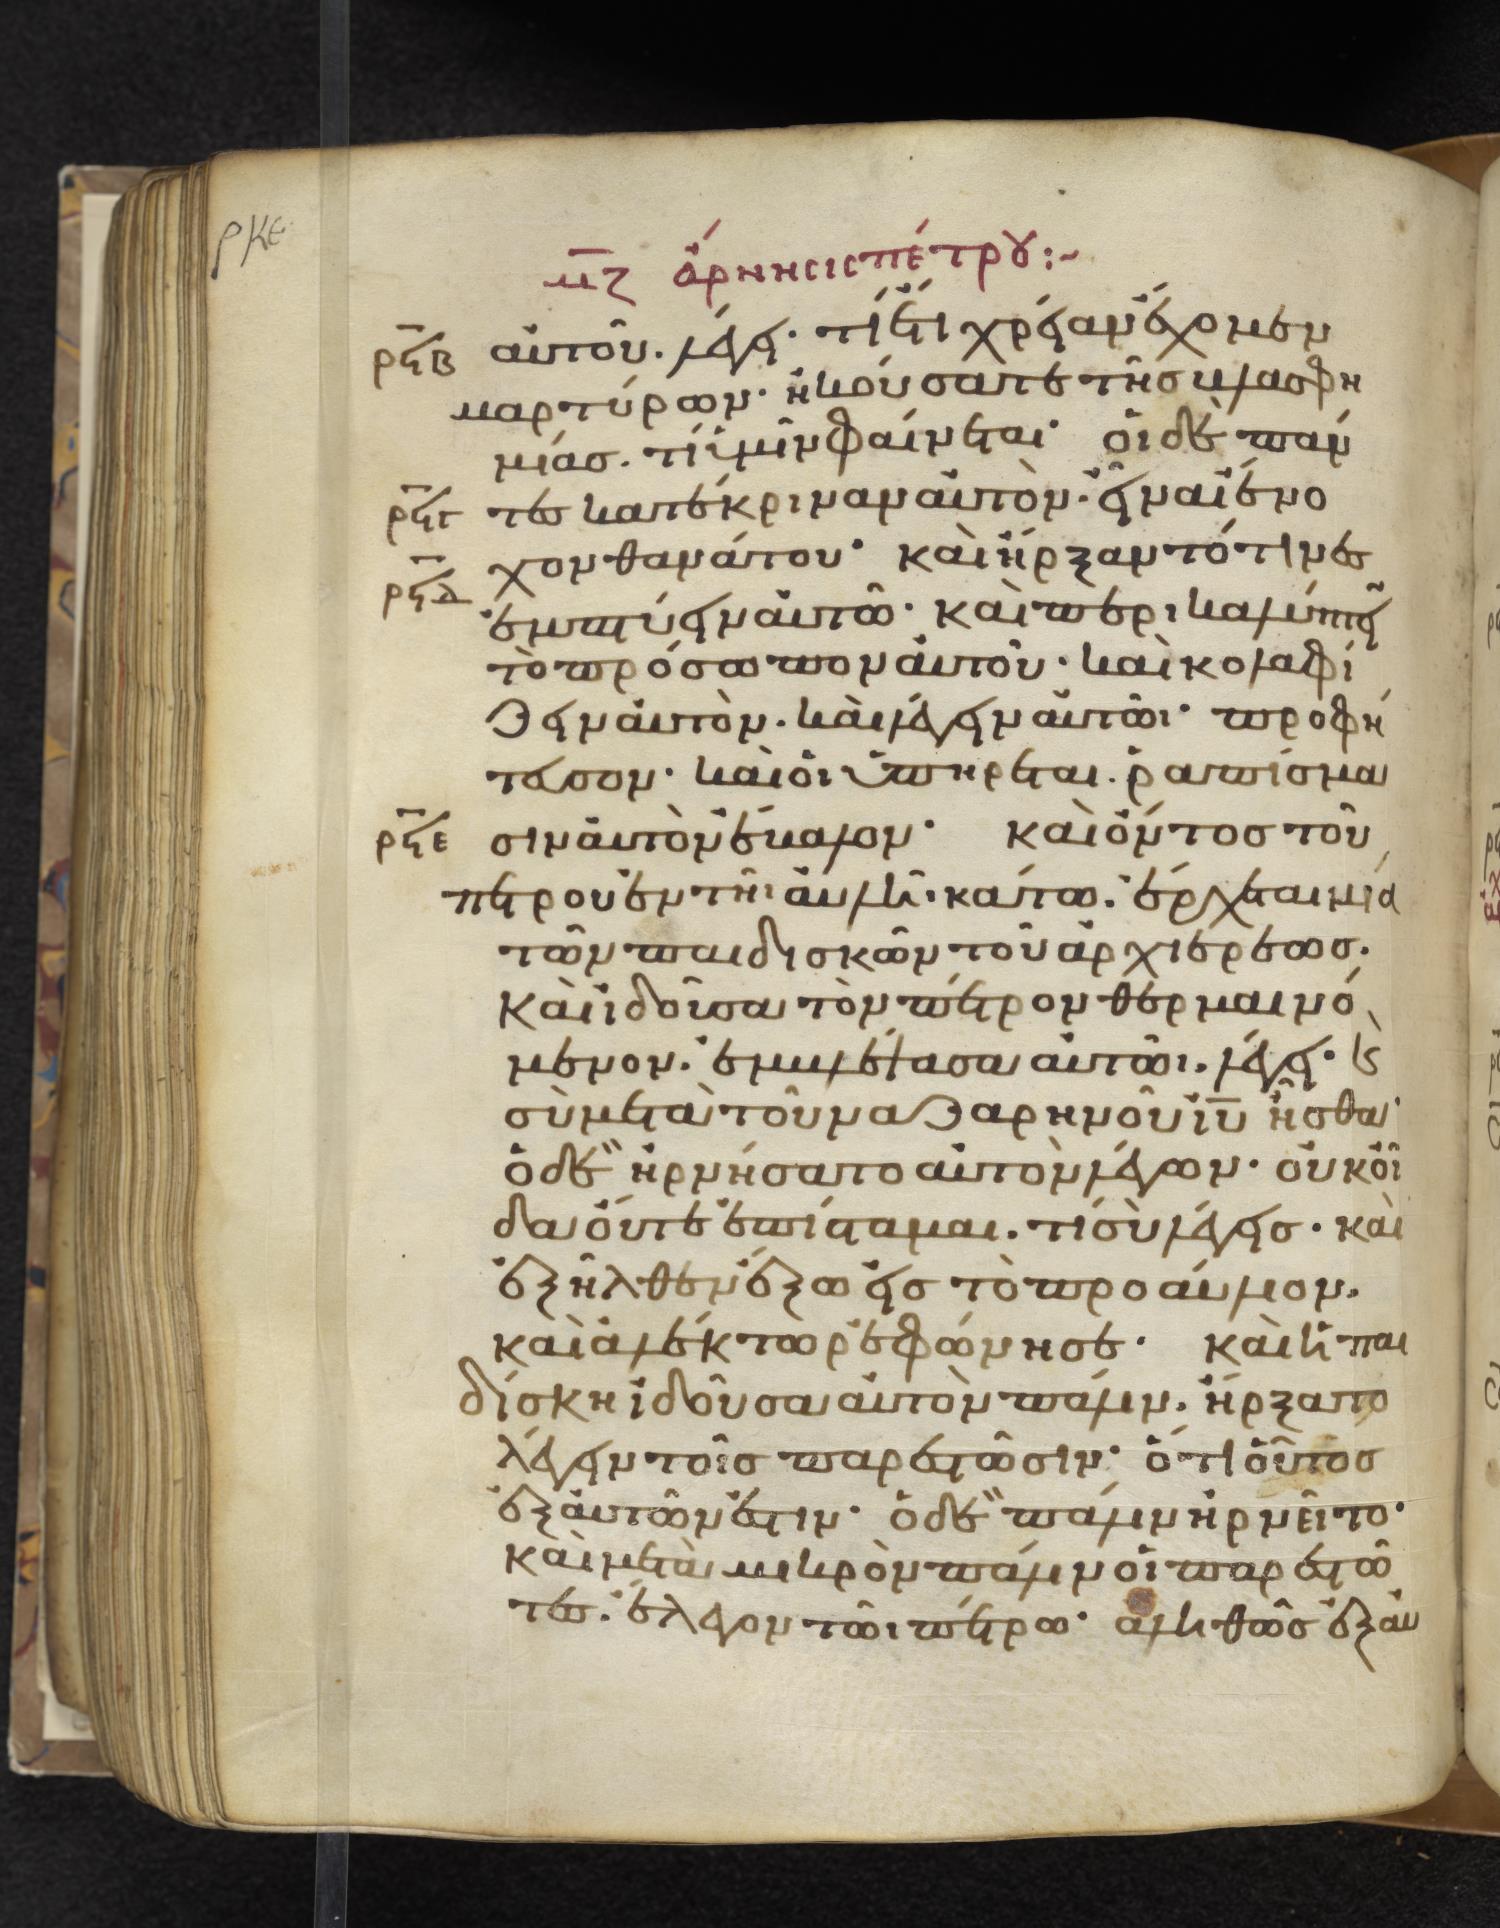 ρκε
μζ ἄρνησις πέτρου:~
ρϟβ αὐτοῦ. λέγει· τί ἔτι χρείαν ἔχομεν
μαρτύρων· ἠκούσατε τῆς βλασφη
μίας. τί ὑμῖν φαίνεται· οἱ δὲ πάν
ρϟγ τες κατέκριναν αὐτὸν. εἶναι ἔνο
χον θανάτου· καὶ ἤρξαντό τινες
ρϟδ ἐμπτύειν αὐτῶ· καὶ περικαλύπτειν
τὸ πρόσωπον αὐτοῦ. καὶ κολαφί
ζειν αὐτὸν. καὶ λέγειν αὐτῶι· προφή
τευσον. καὶ οἱ ὑπηρέται. ῥαπίσμα
ρϟε σιν αὐτὸν ἔβαλον· καὶ ὄντος τοῦ
πέτρου ἐν τῆι αὐλῆ. κάτω. ἔρχεται μία
τῶν παιδισκῶν τοῦ ἀρχιερέως.
καὶ ἰδοῦσα τὸν πέτρον θερμαινό
μενον. ἐμβλέψασα αὐτῶι. λέγει· κ̀
σὺ μετὰ τοῦ ναζαρηνοῦ ἰῡ ἦσθα·
ὁ δὲ ἠρνήσατο αὐτὸν λέγων. οὐκ οἶ
δα οὔτε ἐπίσταμαι. τί σὺ λέγεις. καὶ
ἐξῆλθεν ἔξω εἰς τὸ προαύλιον.
καὶ ἀλέκτωρ ἐφώνησε· καὶ ἡ παι
δίσκη ἰδοῦσα αὐτὸν πάλιν. ἤρξατο
λέγειν τοῖς παρεστῶσιν· ὅτι οὗτος
ἐξ αὐτῶν ἐστιν· ὁ δὲ πάλιν ἠρνεῖτο·
καὶ μετὰ μικρὸν πάλιν οἱ παρεστῶ
τες. ἔλεγον τῶι πέτρω· ἀληθῶς ἐξ αὐ